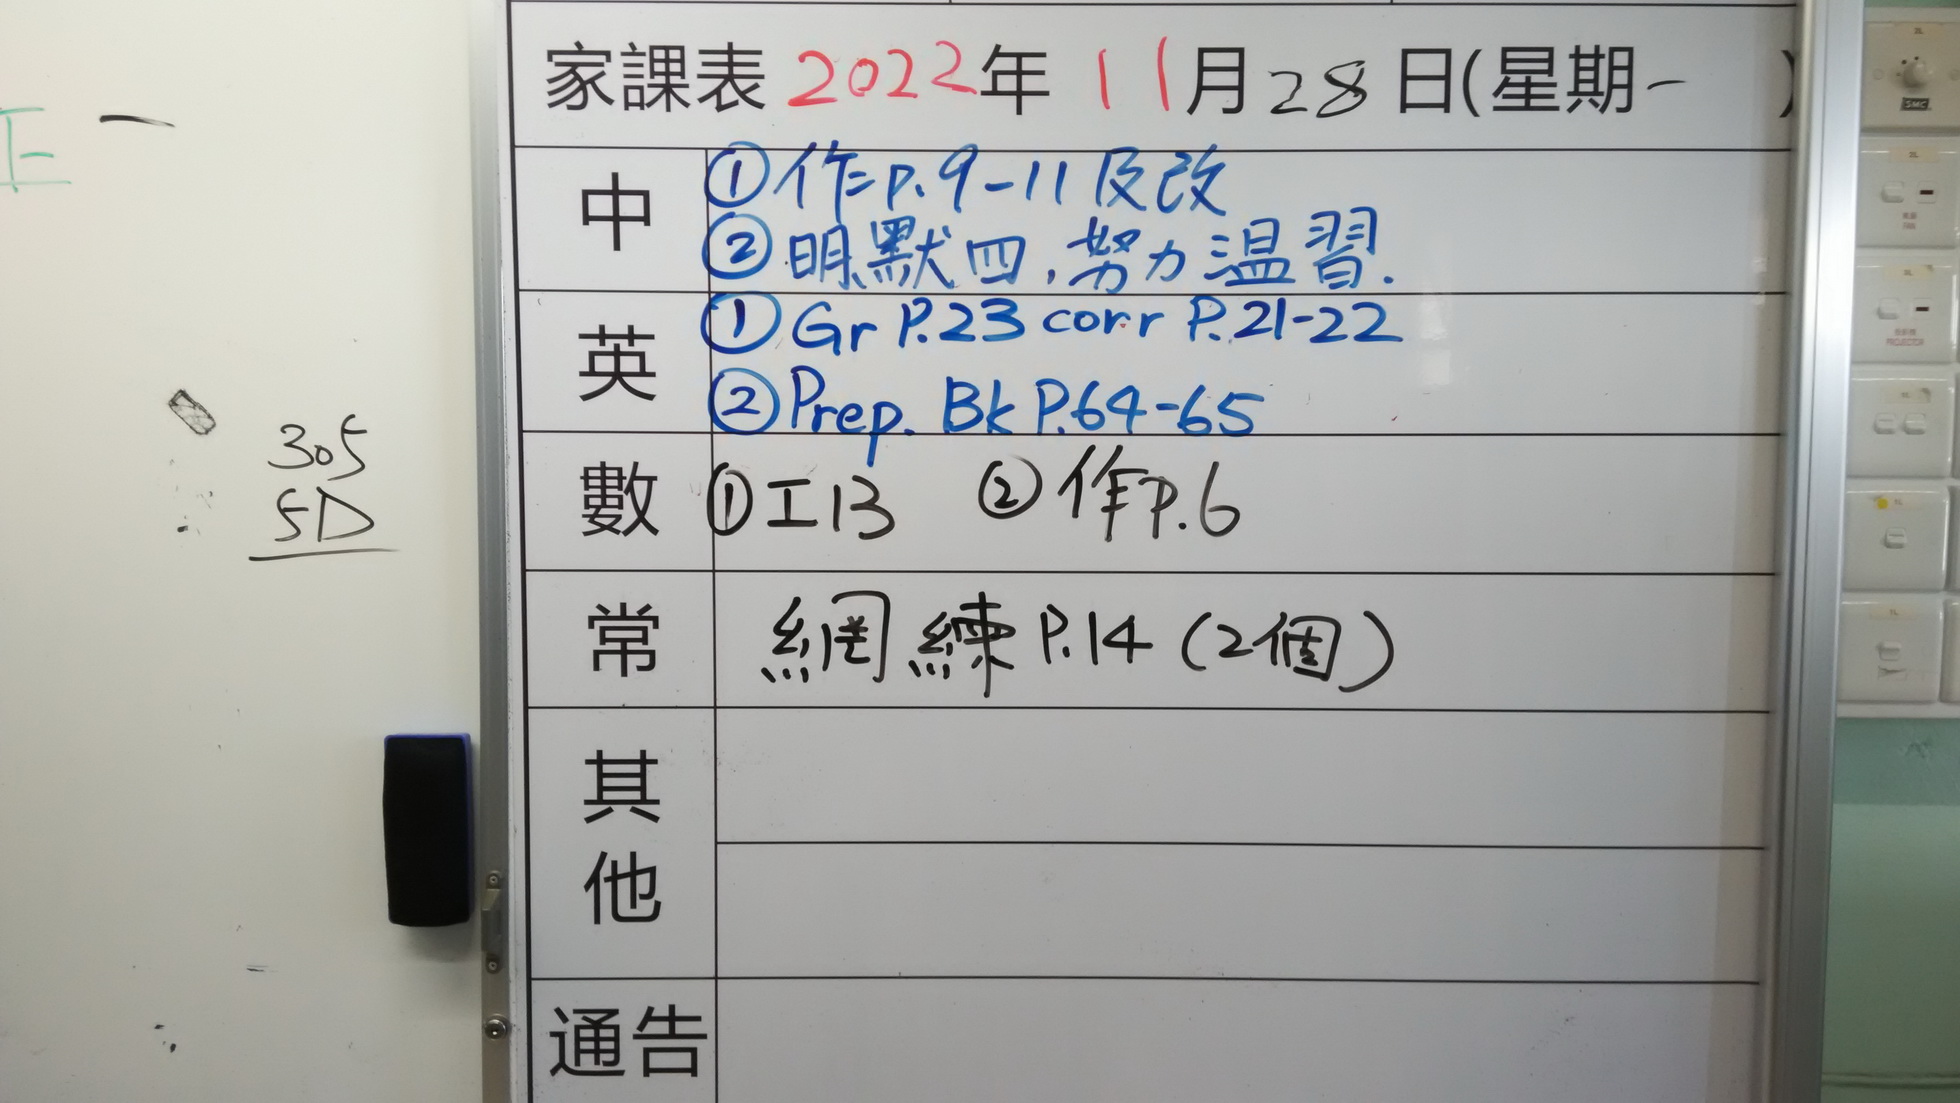 家課表 2022年 11月28日(星期一 )
中 ①作二p.9-11及改
②明默四,努力温習.
英 ①Gr P.23 corr P.21-22
②Prep. Bk P.64-65
數 ①工13 ②作p.6
常 網練P.14(2個)
其他
通告
一
305
5D
SMC
FAN
PROJECTOR